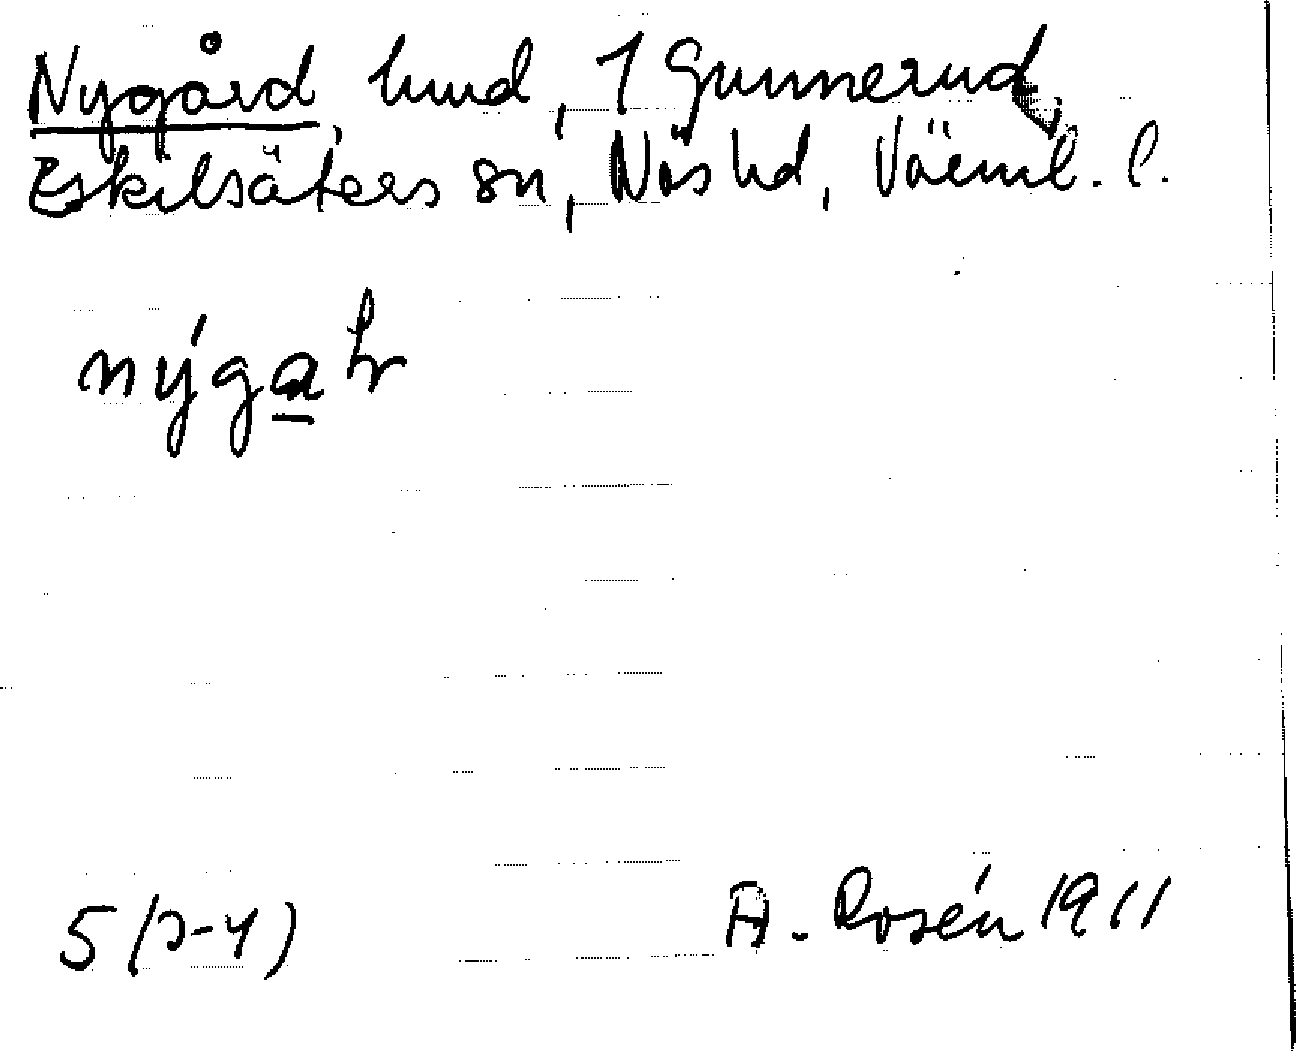 Nygård, hmd, 1 Gunnerud,
Eskilsäters sn, Näs hd, Värml. l.
A. Rosén 1911